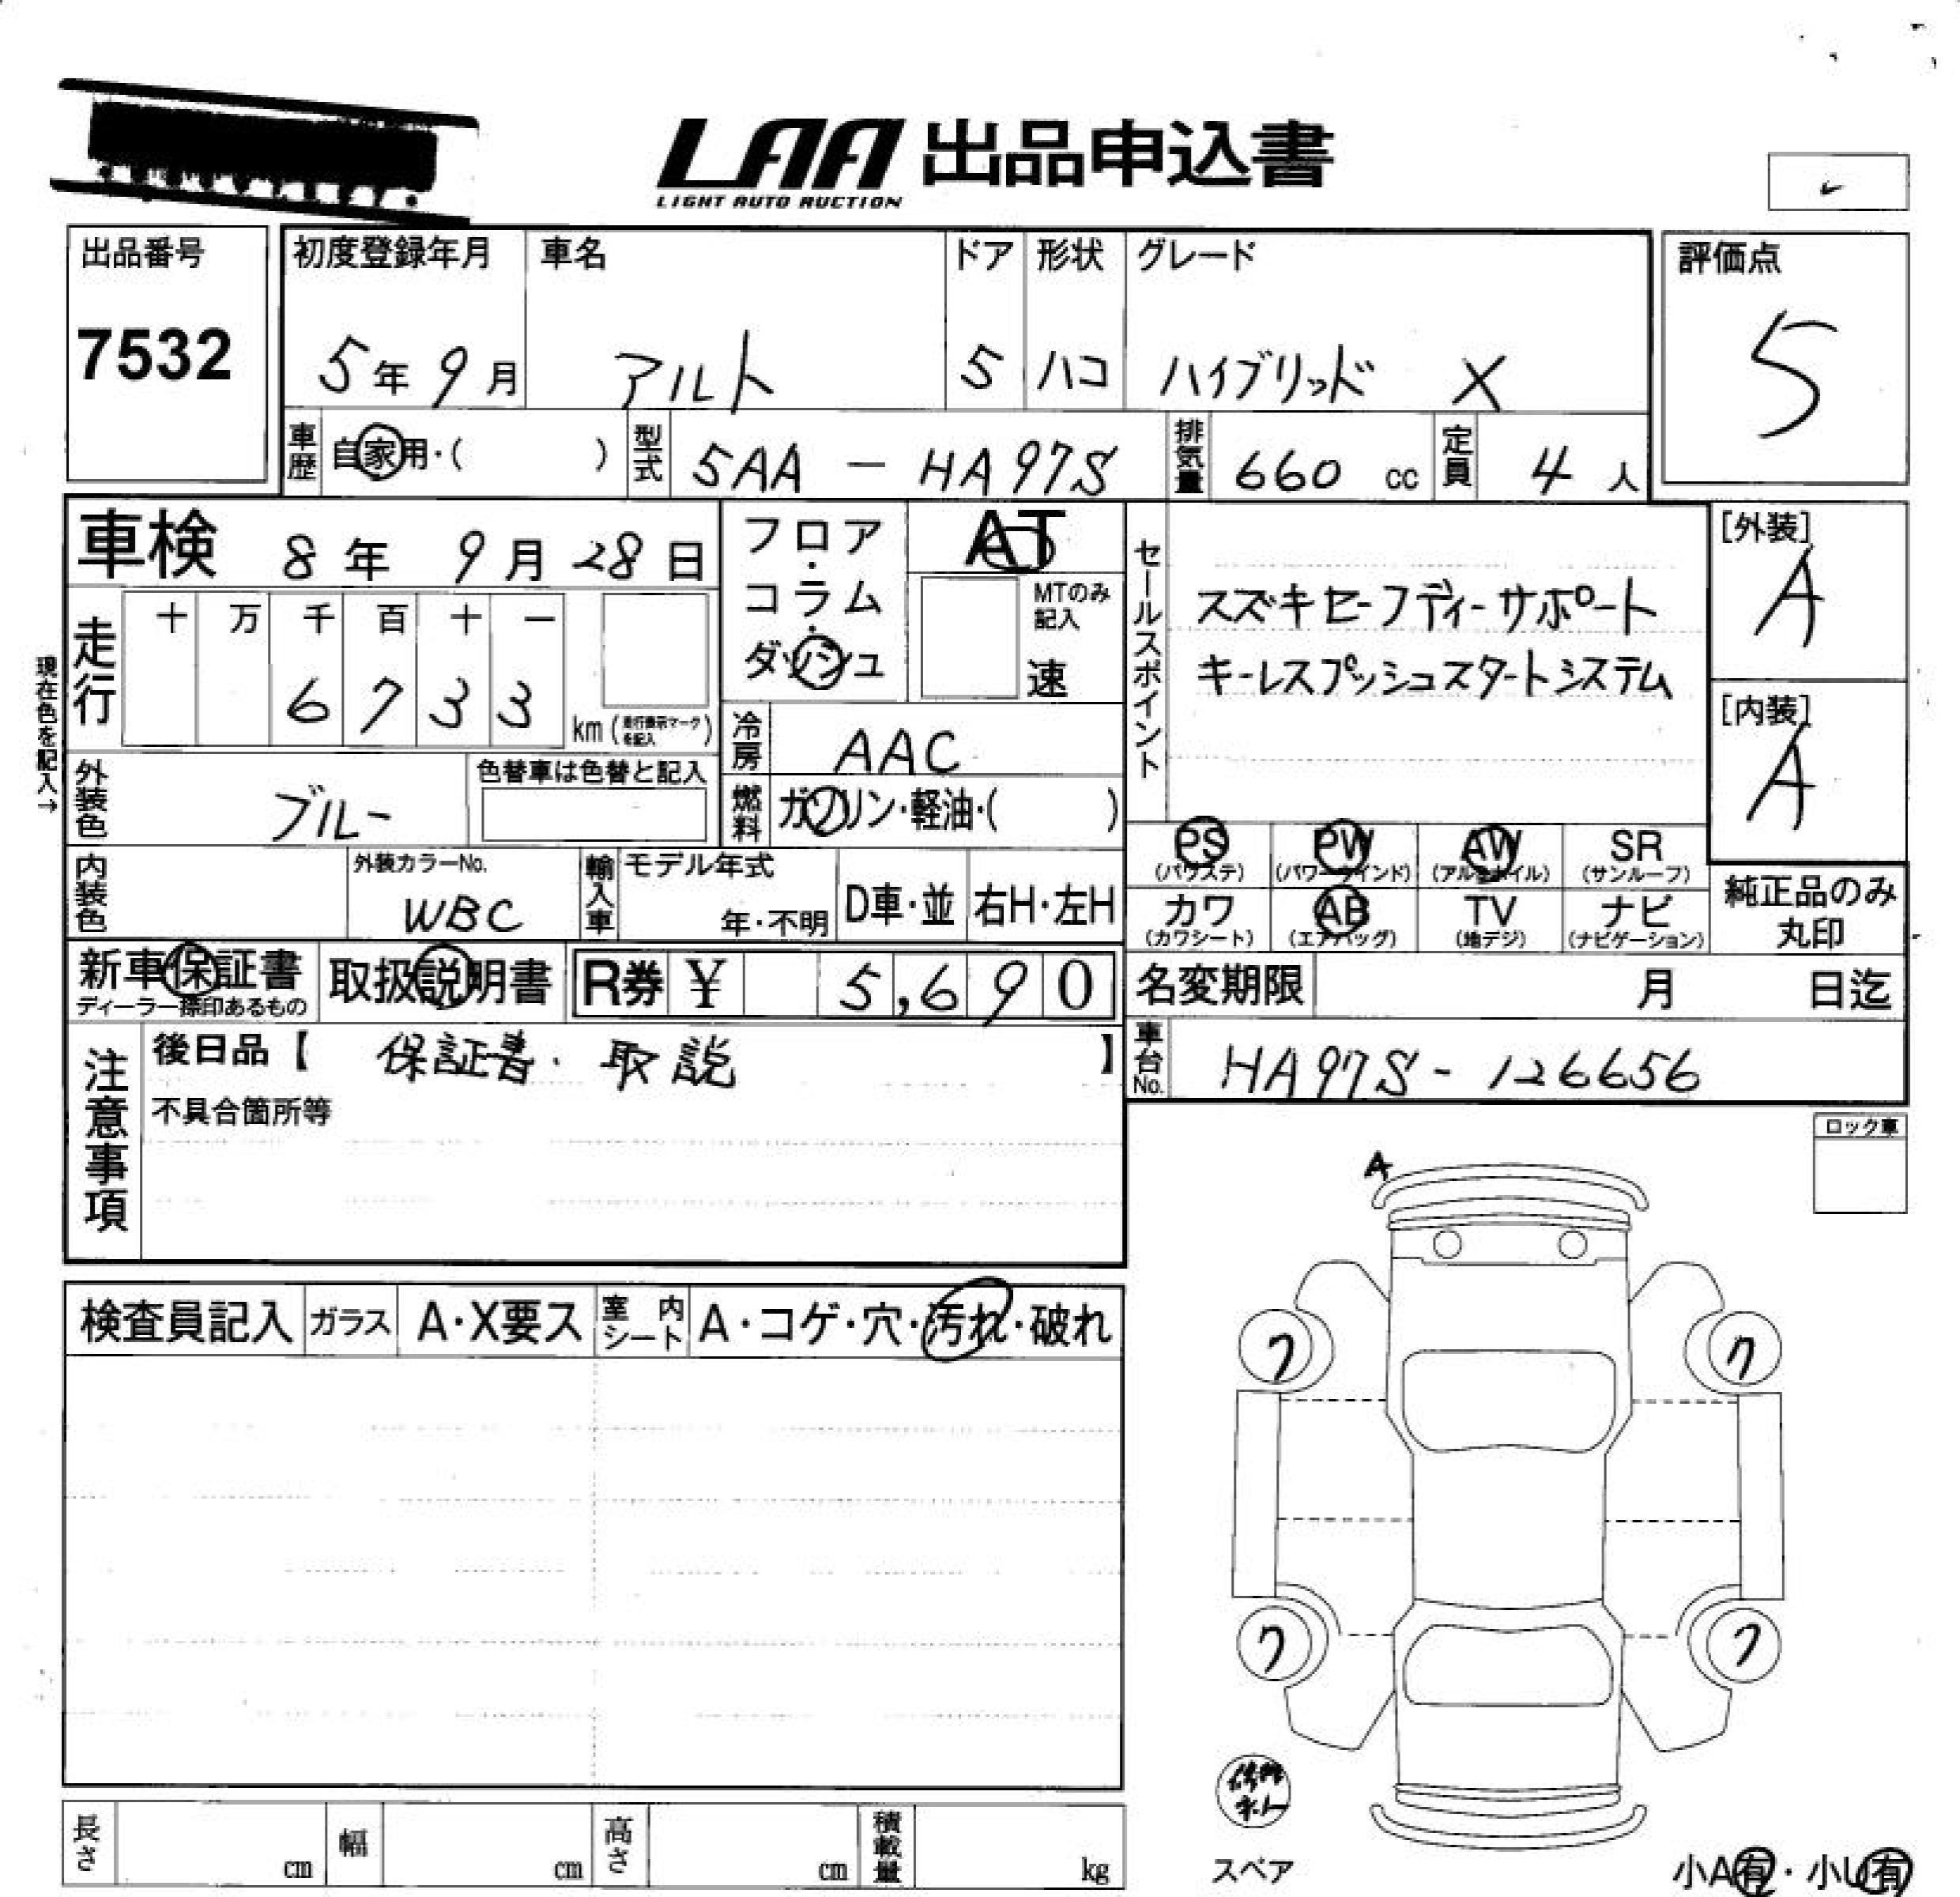 LAA 出品申込書
LIGHT AUTO AUCTION
出品番号
7532
初度登録年月
5年 9月
車名
アルト
ドア
5
形状
ハコ
グレード
ハイブリッド X
評価点
5
車歴 自家用・( )
型式 5AA - HA97S
排気量 660 cc
定員 4 人
車検 8年 9月 28日
フロア・コラム・ダッシュ
AT
MTのみ記入
速
セールスポイント
スズキセーフティーサポート
キーレスプッシュスタートシステム
[外装]
A
[内装]
A
現在色を記入→
走行
十 万 千 百 十 一
6 7 3 3
km (走行表示マークを記入)
冷房 AAC
燃料 ガソリン・軽油・( )
外装色 ブルー
色替車は色替と記入
内装色
外装カラーNo.
WBC
輸入車
モデル年式
年・不明
D車・並
右H・左H
PS (パワステ)
PW (パワーウインド)
AW (アルミホイル)
SR (サンルーフ)
カワ (カワシート)
AB (エアバッグ)
TV (地デジ)
ナビ (ナビゲーション)
純正品のみ
丸印
新車保証書
ディーラー標印あるもの
取扱説明書
R券 ¥ 5,690
名変期限 月 日迄
注意事項
後日品【 保証書・取説 】
不具合箇所等
車台No. HA97S - 126656
ロック車
A
検査員記入
ガラス A・X要ス
室内シート A・コゲ・穴・汚れ・破れ
ワ ワ
ワ ワ
スペア
小A有・小U有
長さ cm
幅 cm
高さ cm
積載量 kg